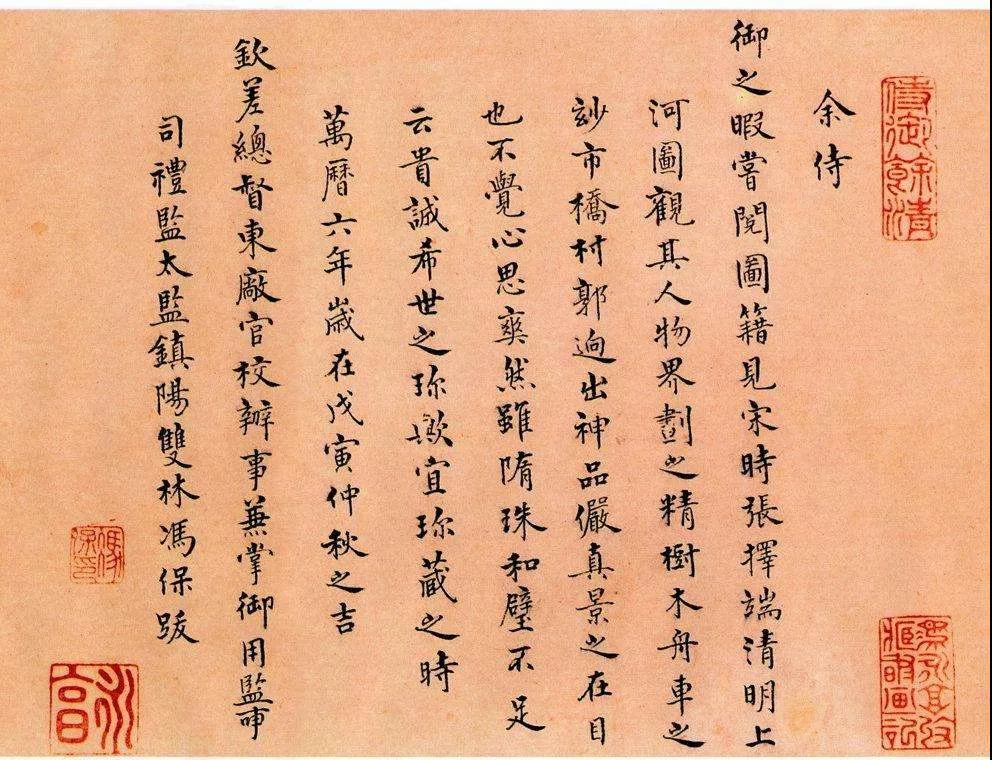 侍御餘清
余侍
御之暇嘗閱圖籍見宋時張擇端清明上
河圖觀其人物界劃之精樹木舟車之
玅市橋村郭逈出神品儼真景之在目
也不覺心思爽然雖隋珠和璧不足
云貴誠希世之珎歟宜珎藏之時
萬曆六年歲在戊寅仲秋之吉
欽差總督東廠官校辦事兼掌御用監事
司禮監太監鎮陽雙林馮保跋